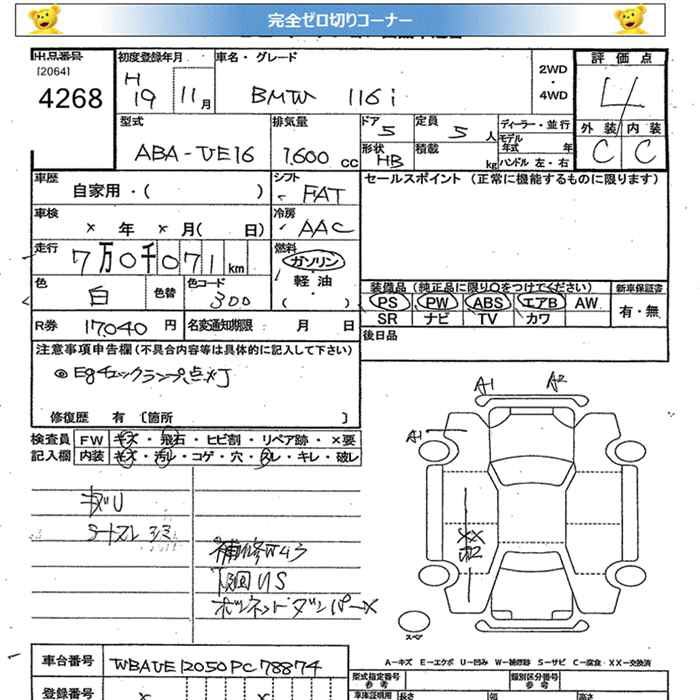 完全ゼロ切りコーナー
出品番号
[2064]
4268
初度登録年月
H
19 11月
車名・グレード
BMW 116i
2WD
・
4WD
評価点
4
外装 内装
C C
型式
ABA-UE16
排気量
1.600 cc
ドア 5
形状 HB
定員 5 人
積載 kg
ディーラー・並行
モデル
年式 年
ハンドル 左・右
車歴
自家用・( )
シフト
FAT
セールスポイント (正常に機能するものに限ります)
車検
× 年 × 月( 日)
冷房
AAC
走行
7万0千071km
燃料
ガソリン
・
軽油
( )
色
白
色替
色コード
300
装備品 (純正品に限り○をつけてください)
PS PW ABS エアB AW
SR ナビ TV カワ
新車保証書
有・無
R券 17040 円
名変通知期限 月 日
後日品
注意事項申告欄(不具合内容等は具体的に記入して下さい)
◎Egチェックランプ点灯
修復歴 有 〔箇所 〕
検査員
記入欄
FW キズ・飛石・ヒビ割・リペア跡・×要
内装 キズ・汚レ・コゲ・穴・スレ・キレ・破レ
キズU
シートスレ シミ
補修ムラ
凹US
ボンネットダンパー×
A1 A2
A1
XX
スペア
A-キズ E-エクボ U-凹み W-補修跡 S-サビ C-腐食・XX-交換済
車台番号 WBAUE12050PC78874
登録番号
型式指定番号
参考
類別区分番号
参考
車庫証明用
長さ
幅
高さ